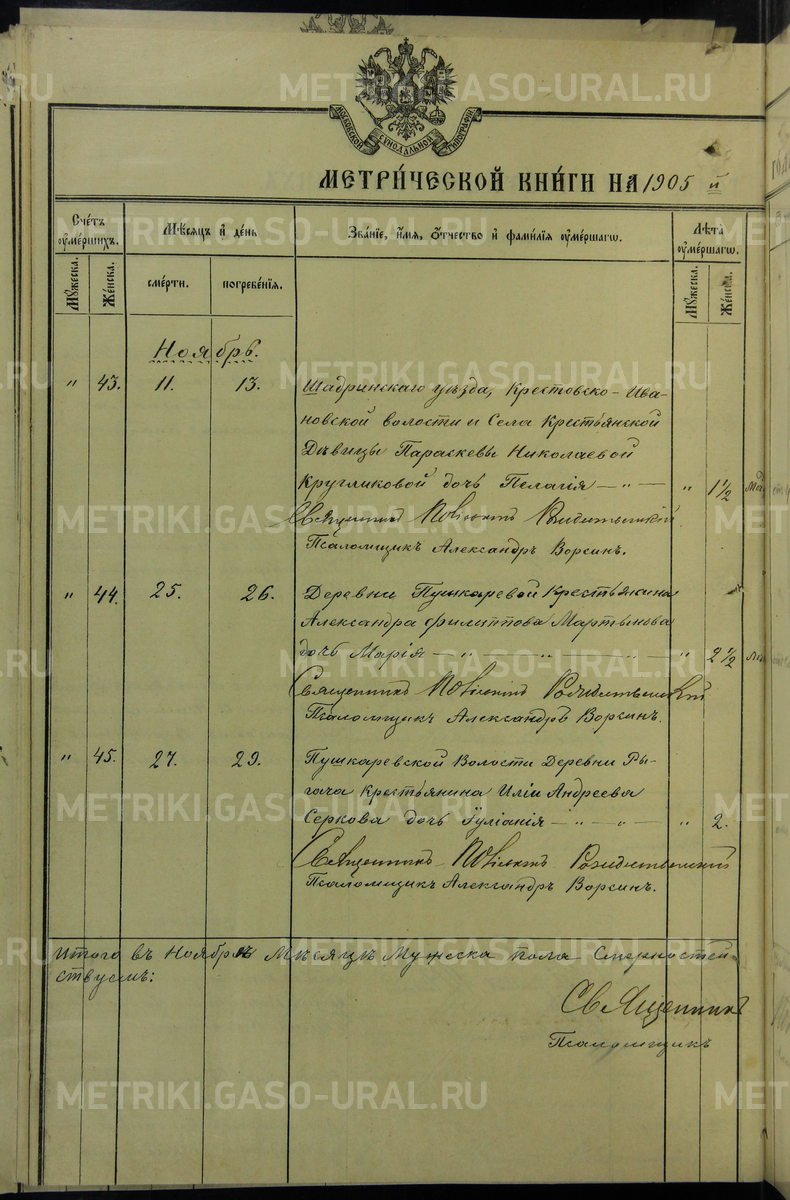 МОСКОВСКОЙ СѴНОДАЛЬНОЙ ТИПОГРАФІИ
МЕТРИ́ЧЕСКОЙ КНИ́ГИ НА 1905 й
Сче́тъ ᲂу҆ме́ршихъ.
Мѣ́сяцъ и҆ де́нь
Зва́нїе, и҆́мя, ѻ҆́тчество и҆ фами́лїя ᲂу҆ме́ршагѡ.
Лѣ́та ᲂу҆ме́ршагѡ.
Му́жеска.
Же́нска.
сме́рти.
погребе́нїя.
Му́жеска.
Же́нска.
Ноябрь.
" 43. 11. 13. Шадринскаго уѣзда, Крестовско-Ива-
новской волости и Села Крестьянской
Дѣвицы Параскевы Николаевой
Кругликовой дочь Пелагія — " — " 1 1/2
Священникъ Рождественскій
Псаломщикъ Александръ Ворсинъ.
" 44. 25. 26. Деревни Пушкаревой Крестьянина
Александра Филиппова Мартынова
дочь Марія — " — " — " — " 2 1/2
Священникъ Рождественскій
Псаломщикъ Александръ Ворсинъ.
" 45. 27. 29. Пушкаревской Волости Деревни Ры-
гача Крестьянина Иліи Андреева
Серкова дочь Іуліанія — " — " — " 2.
Священникъ Рождественскій
Псаломщикъ Александръ Ворсинъ.
Итого въ Ноябрѣ Мѣсяцѣ Мужеска пола
ствуемъ:
Священникъ
Псаломщикъ
METRIKI.GASO-URAL.RU